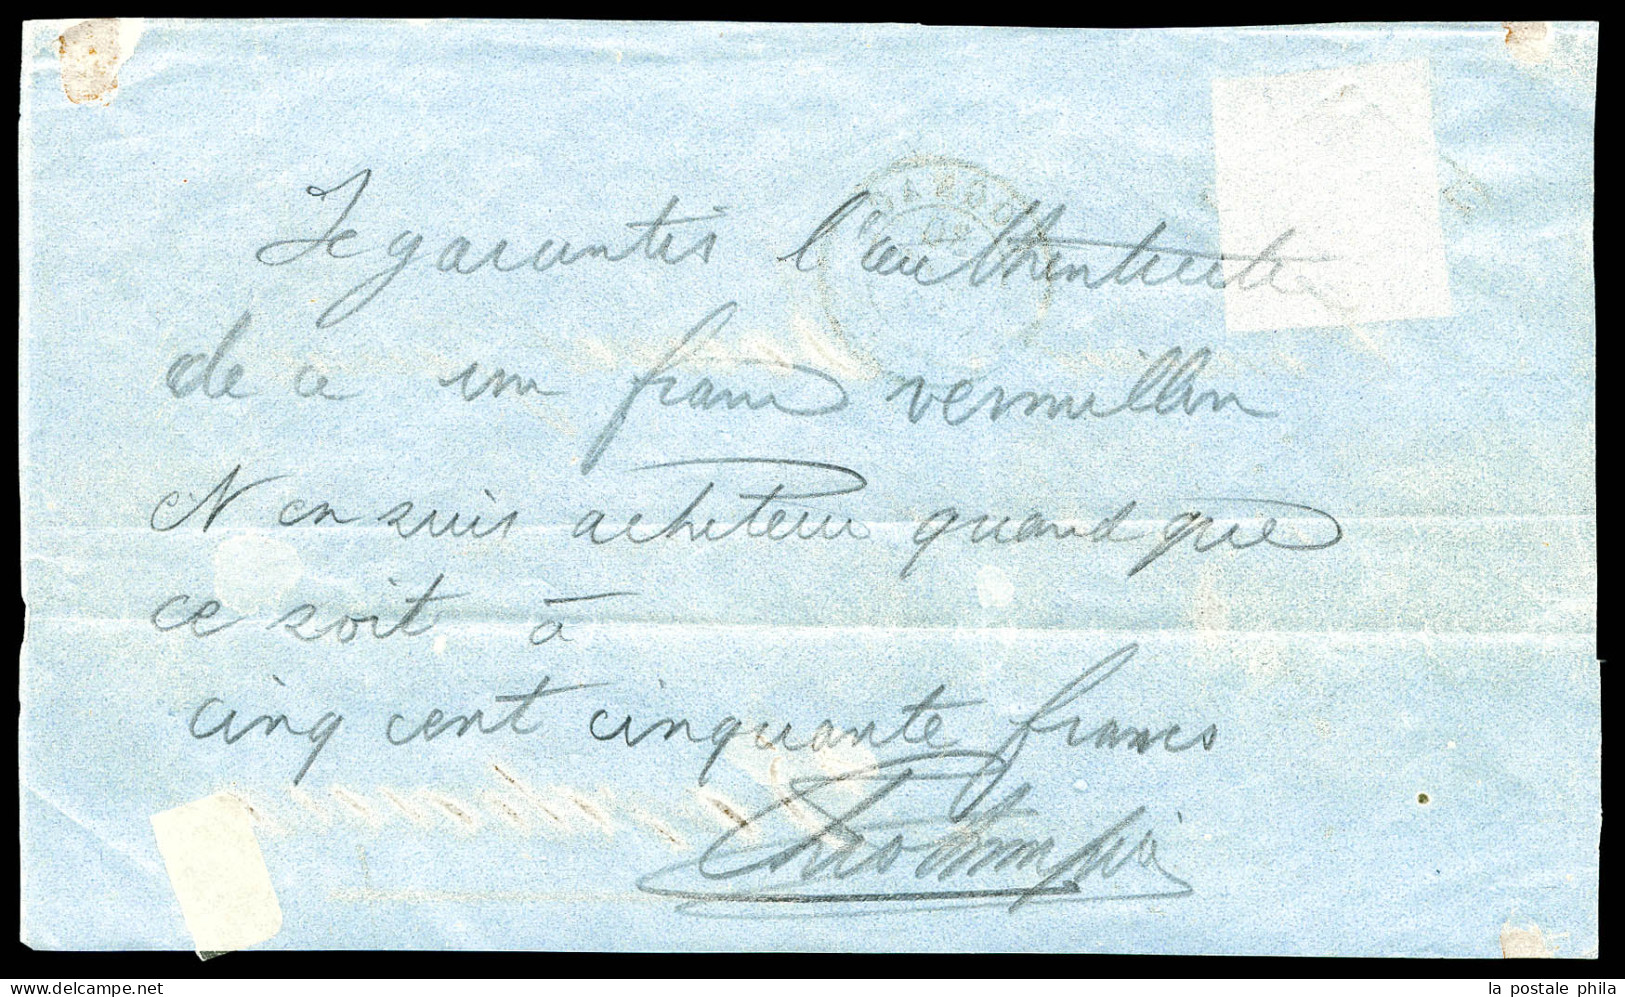 Je garantis l'authenticité
de ce un franc vermillon
N en suis acheteur quand que
ce soit à
cinq cent cinquante francs
www.delcampe.net
la postale phila